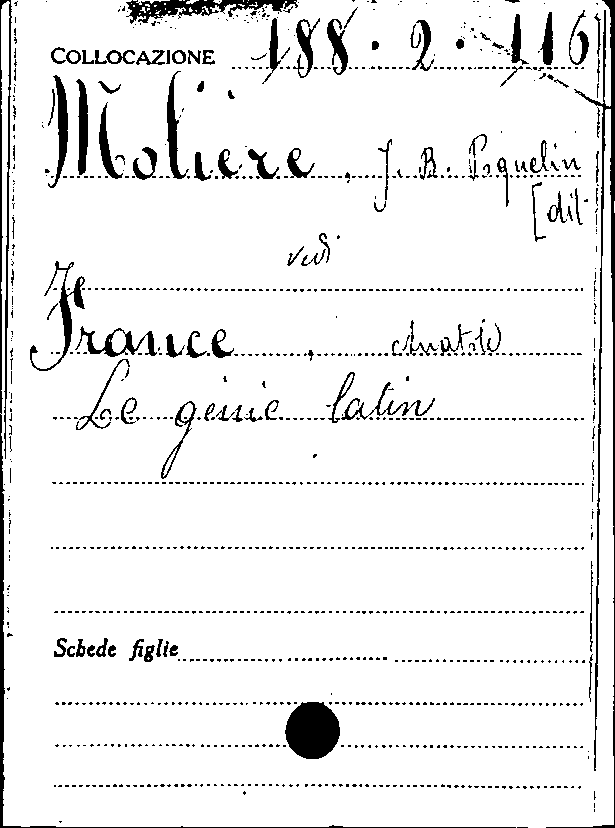 COLLOCAZIONE 188·2·116
Molière, J. B. Poquelin
[dit
vedi
France, Anatole
Le génie latin
Schede figlie